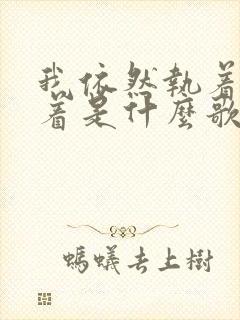 我依然執着
着是什麼歌
螞蟻去上樹